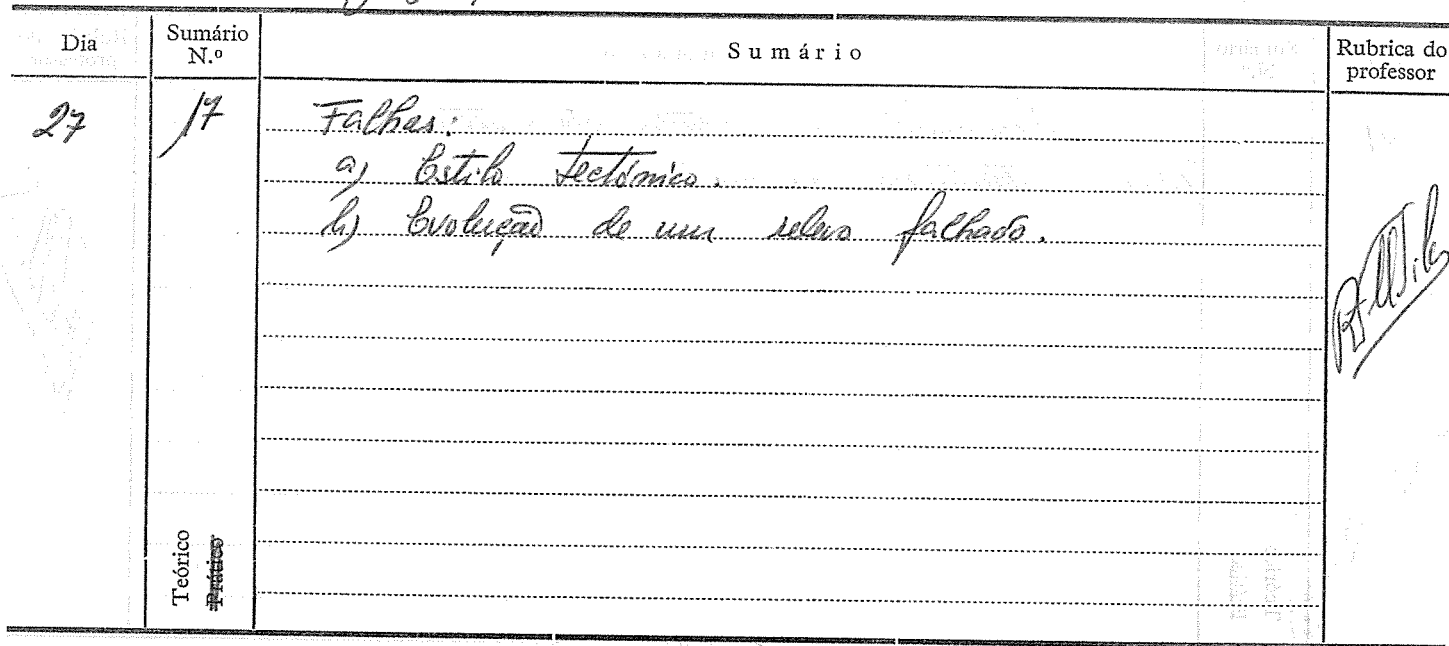 Dia
Sumário N.º
Sumário
Rubrica do professor
27
17
Falhas:
a) Estilo tectónico.
b) Evolução de um relevo falhado.
Teórico
Prático